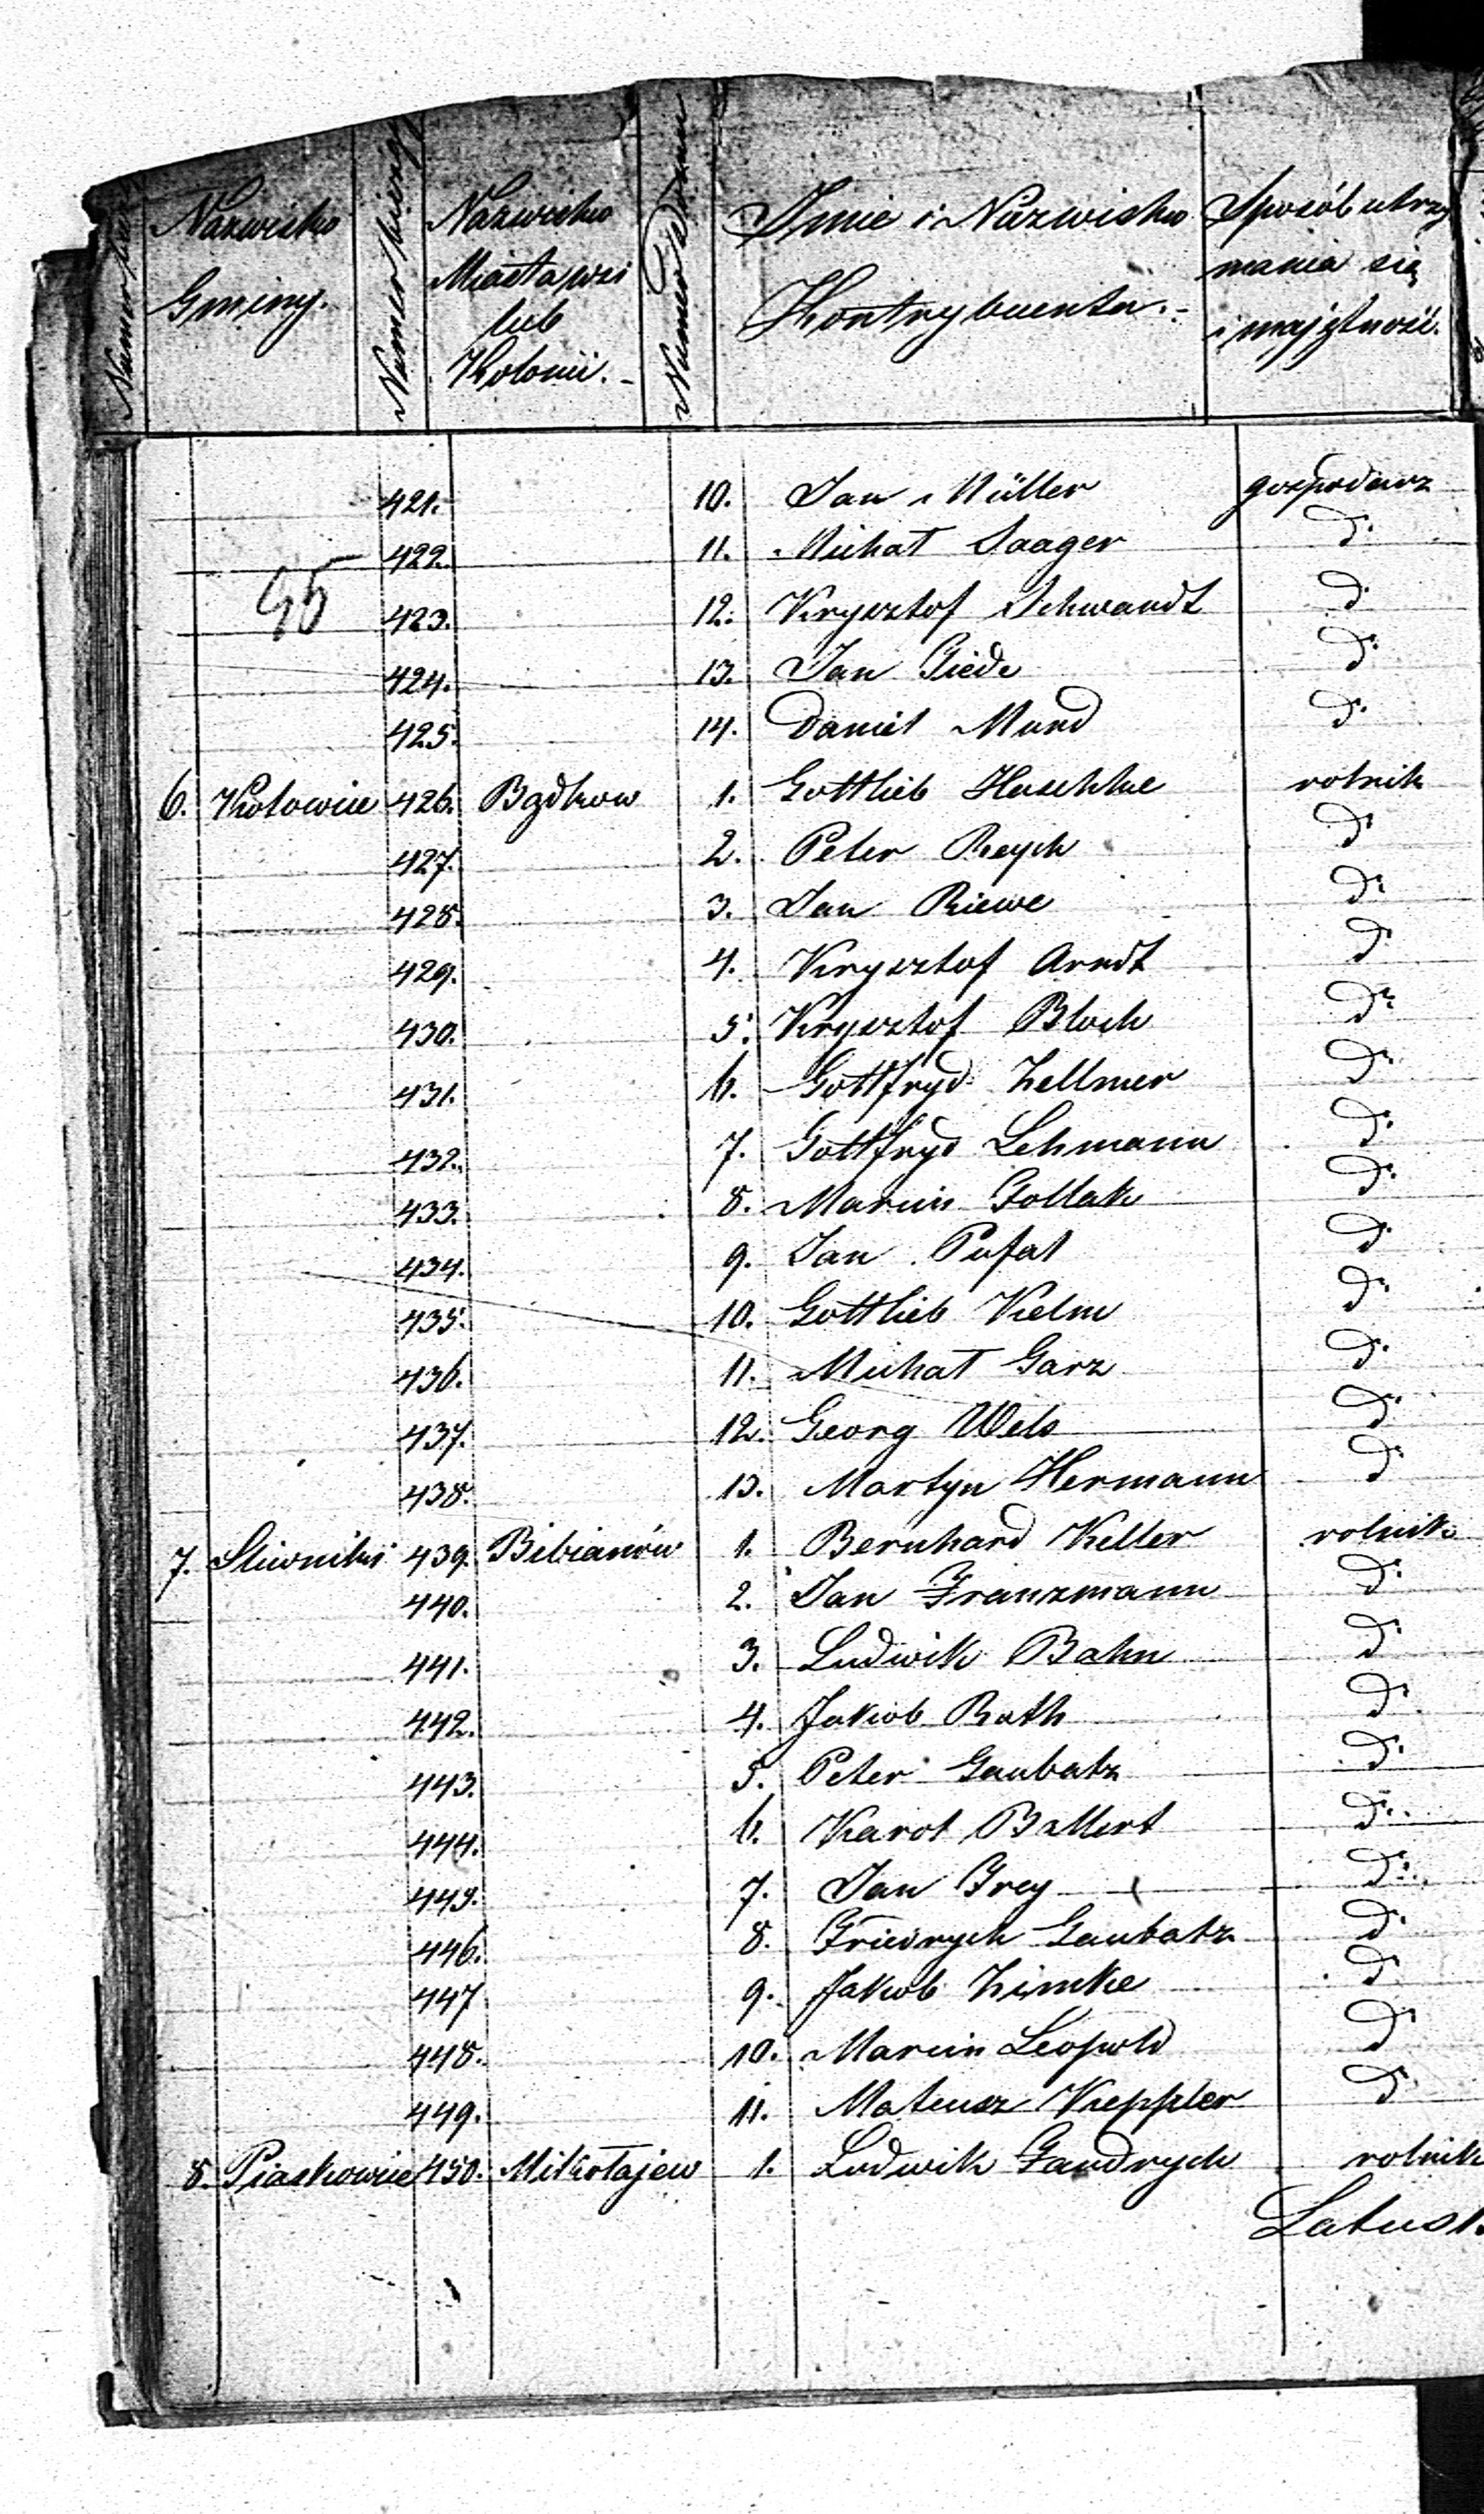 Nazwisko Gminy.
Numer bieżący
Nazwisko Miasta, wsi lub Kolonii.
Numer Domu
Imie i Nazwisko Kontrybuenta.
Sposób utrzymania się i majętność.
421. 10. Jan Müller gospodarz
422. 11. Michał Saager do
45
423. 12. Krysztof Schwandt do
424. 13. Jan Giede do
425. 14. Daniel Mund do
6. Kotowice 426. Bądkow 1. Gottlieb Haschke rolnik
427. 2. Peter Reych do
428. 3. Jan Riewe do
429. 4. Krysztof Arndt do
430. 5. Krysztof Block do
431. 6. Gottfryd Zellmer do
432. 7. Gottfryd Lehmann do
433. 8. Marcin Gollak do
434. 9. Jan Pufal do
435. 10. Gottlieb Kelm do
436. 11. Michał Garz do
437. 12. Georg Wels do
438. 13. Martyn Hermann do
7. Sliwniki 439. Bibianów 1. Bernhard Keller rolnik
440. 2. Jan Franzmann do
441. 3. Ludwik Bahn do
442. 4. Jakób Rath do
443. 5. Peter Gaubatz do
444. 6. Karol Ballert do
445. 7. Jan Frey do
446. 8. Friedrych Gaubatz do
447 9. Jakob Zimke do
448. 10. Marcin Leopold do
449. 11. Mateusz Keppler do
8. Piaskowice 450. Mikołajew 1. Ludwik Gandrych rolnik
Latus